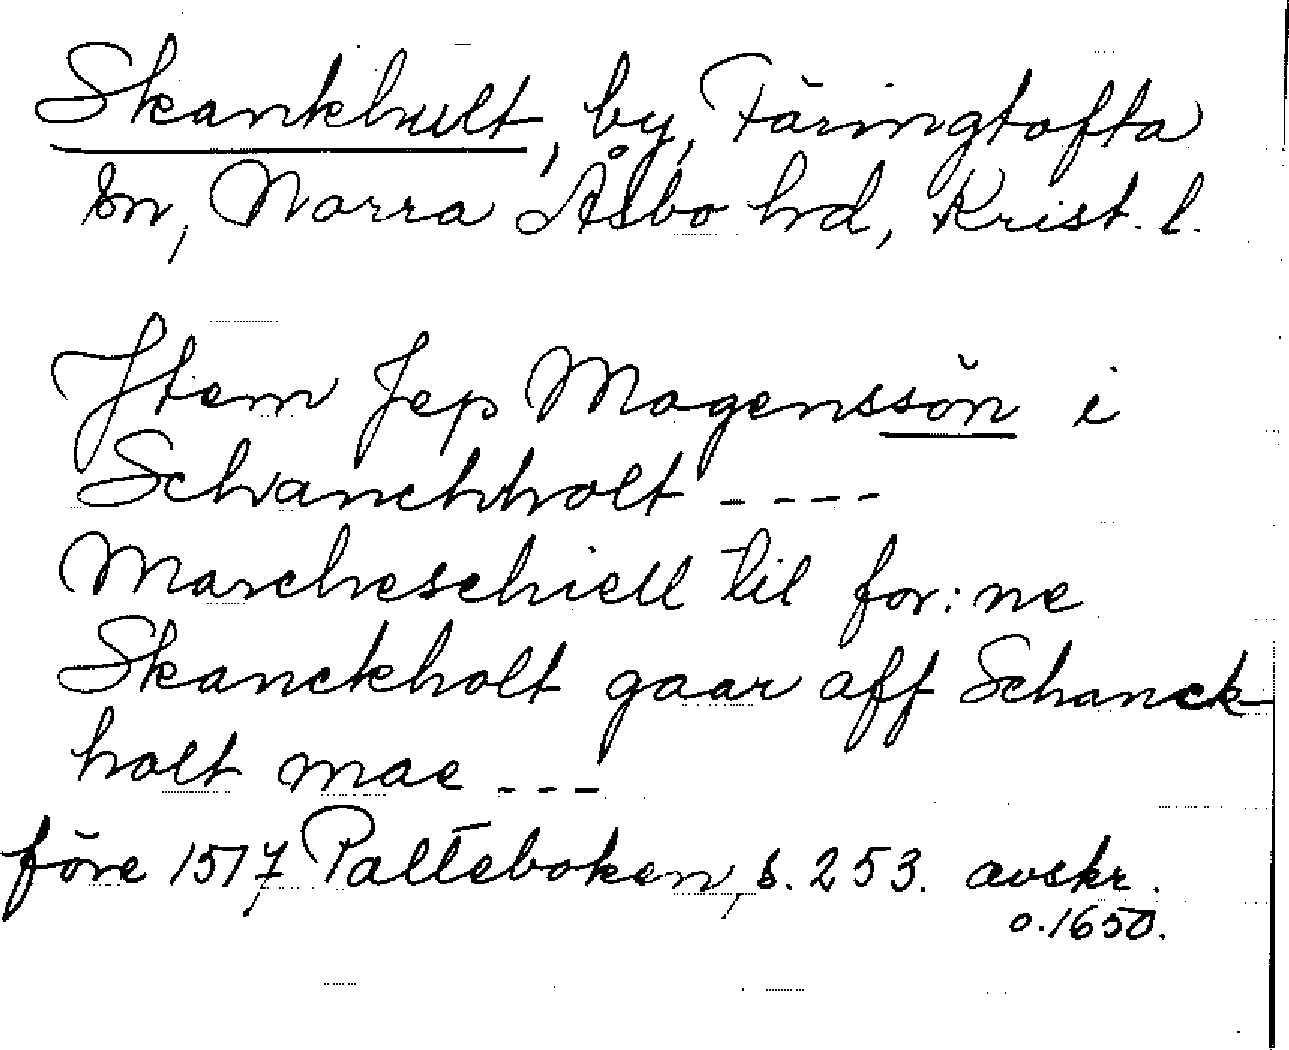 Skankhult, by, Färingtofta
sn, Norra Åsbo hd, Krist. l.
Item Jep Mogenssön i
Schanchholt ----
Marcheschiell til for:ne
Skanckholt gaar aff Schanck
holt mae ---
före 1517, Palteboken, s. 253. avskr.
o. 1650.